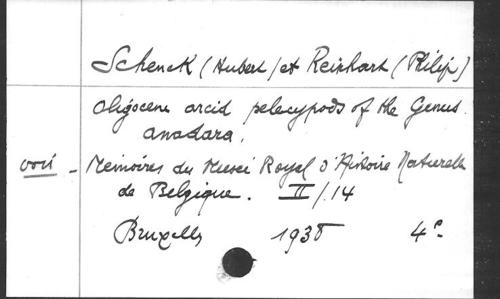 Schenck (Hubert) et Reinhart (Philip)
Oligocene arcid pelecypods of the Genus
anadara.
voir - Memoires du Museé Royal d'Histoire Naturelle
de Belgique. II/14
Bruxelles 1938 4°.